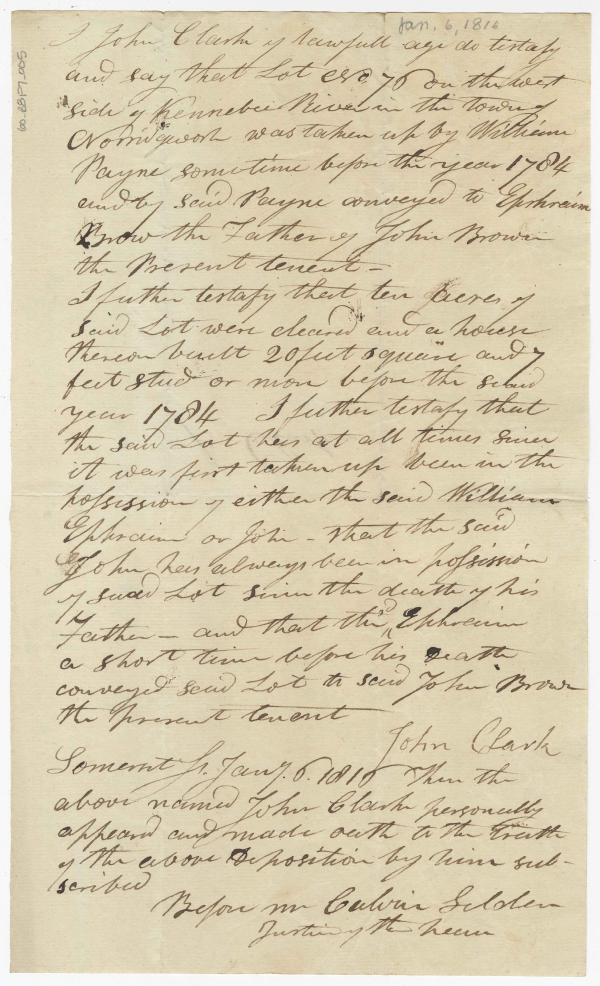 Jan. 6, 1816
I John Clark of lawfull age do testafy
and say that Lot No 76 on the west
side of Kennebec River in the town of
Norridgwock was taken up by William
Payne sometime before the year 1784
and by said Payne conveyed to Ephraim
Brow the Father of John Brown
the Present tenent —
I futher testafy that ten Acres of
said Lot were cleared and a house
thereon built 20 feet square and 7
feet stud or more before the said
year 1784 I futher testafy that
the said Lot has at all times since
it was first taken up been in the
possession of either the said William
Ephraim or John - that the said
John has always been in possission
of said Lot since the death of his
Father — and that the sd Ephraim
a short time before his Death
conveyed said Lot to said John Brown
the present tenent
John Clark
Somerset Ss. Jany. 6. 1816 Then the
above named John Clark personally
appeared and made oath to the truth
of the above Deposition by him sub-
scribed
Before me Calvin Selden
Justice of the Peace